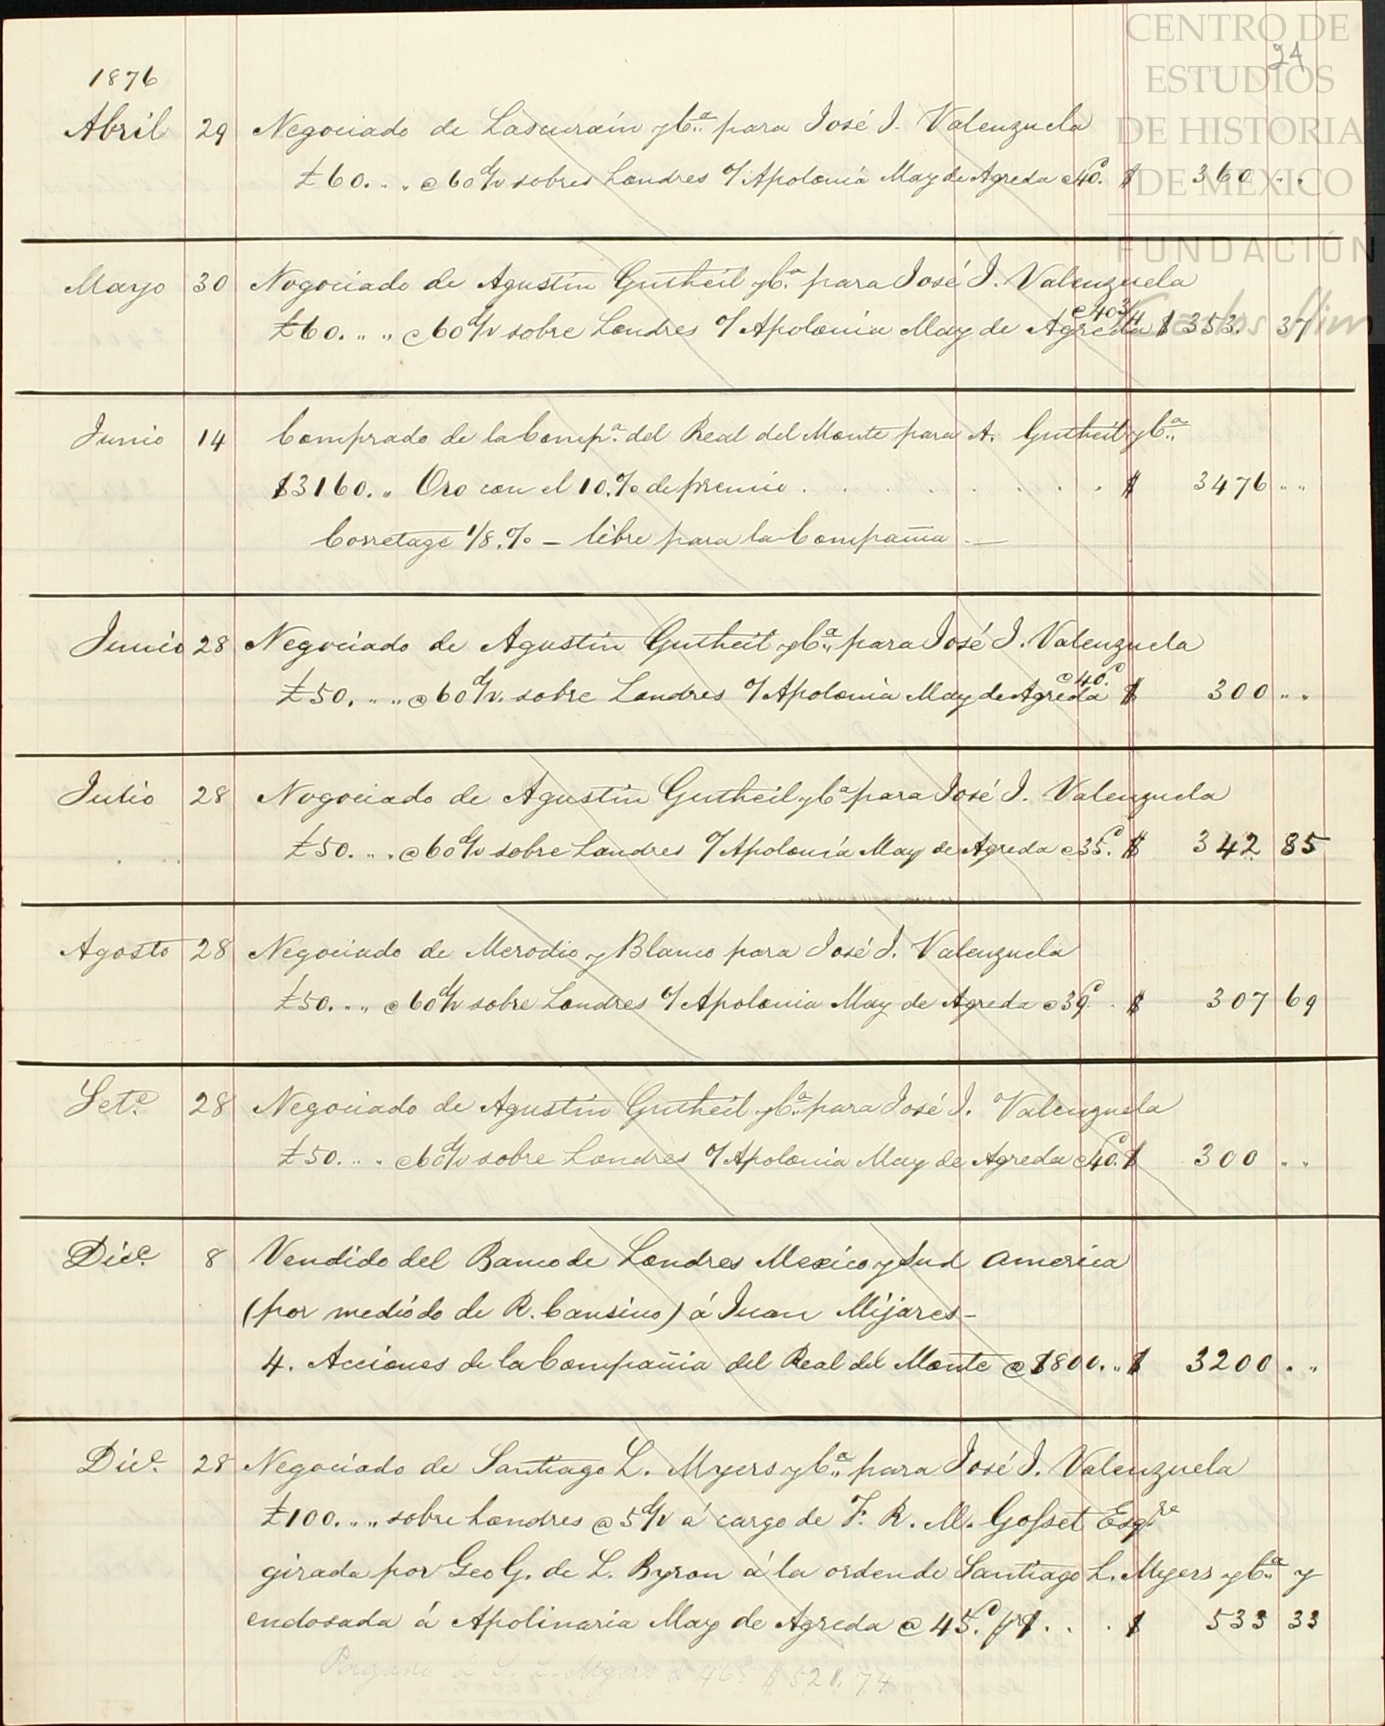 CENTRO DE
ESTUDIOS
DE HISTORIA
DE MEXICO
FUNDACIÓN
Carlos Slim
24
1876
Abril 29 Negociado de Lascurain y Cª para José J. Valenzuela
£60. „ „ @ 60 d/v sobres Londres o/ Apolonia May de Agreda @ 40.d $ 360 „ „
Mayo 30 Negociado de Agustin Gutheil y Cª para José J. Valenzuela
@ 40¾
£60. „ „ @ 60 d/v sobre Londres o/ Apolonia May de Agreda $ 353. 37
Junio 14 Comprado de la Compª del Real del Monte para A. Gutheil y Cª
$3160. „ Oro con el 10.% de premio . . . . . . . . $ 3476 „ „
Corretage 1/8.% – libre para la Compañia . —
Junio 28 Negociado de Agustin Gutheil y Cª para José J. Valenzuela
@ 40.d
£50. „ „ @ 60 d/v. sobre Londres o/ Apolonia May de Agreda $ 300 „ „
Julio 28 Nogociado de Agustin Gutheil y Cª para José J. Valenzuela
£50. „ „ @ 60 d/v sobre Londres o/ Apolonia May de Agreda @ 35.d $ 342 85
Agosto 28 Negociado de Merodio y Blanco para José J. Valenzuela
£50. „ „ @ 60 d/v sobre Londres o/ Apolonia May de Agreda @ 39.d . $ 307 69
Set.e 28 Negociado de Agustin Gutheil y Cª para José J. Valenzuela
£50. „ „ @ 60 d/v sobre Londres o/ Apolonia May de Agreda @ 40.d $ 300 „ „
Dic.e 8 Vendido del Banco de Londres Mexico y Sud America
(por medio do de R. Cansino) á Juan Mijares –
4. Acciones de la Compañia del Real del Monte @ $800. „ $ 3200 „ „
Dic.e 28 Negociado de Santiago L. Myers y Cª para José J. Valenzuela
£100. „ „ sobre Londres @ 5 d/v á cargo de F. R. M. Gosset Esq.re
girada por Geo G. de L. Byron á la orden de Santiago L. Myers y Cª y
endosada á Apolinaria May de Agreda @ 45.d p$ . . . $ 533 33
Pagado á S. L. Myers á 46d $ 521. 74